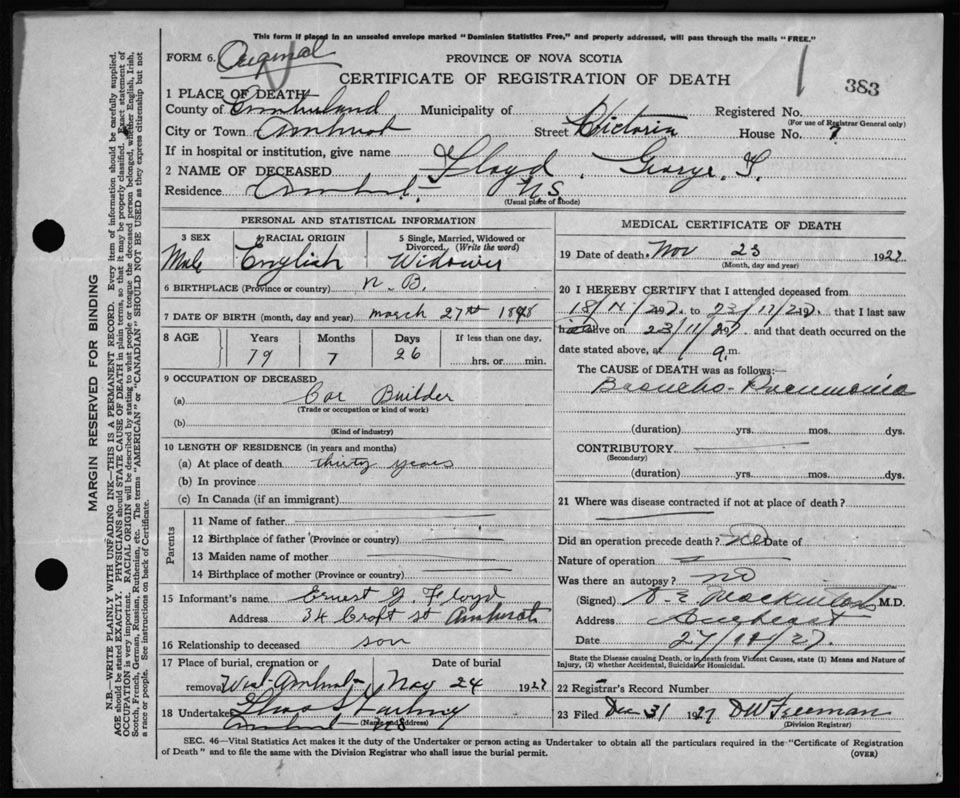 This form if placed in an unsealed envelope marked "Dominion Statistics Free," and properly addressed, will pass through the mails "FREE."
FORM 6. Original
PROVINCE OF NOVA SCOTIA
CERTIFICATE OF REGISTRATION OF DEATH
383
1 PLACE OF DEATH
County of Cumberland Municipality of Registered No.
(For use of Registrar General only)
City or Town Amherst Street Victoria House No. 7
If in hospital or institution, give name
2 NAME OF DECEASED Floyd, George.
Residence Amherst N.S.
(Usual place of abode)
PERSONAL AND STATISTICAL INFORMATION
3 SEX RACIAL ORIGIN 5 Single, Married, Widowed or Divorced. (Write the word)
Male English Widower
6 BIRTHPLACE (Province or country) N.B.
7 DATE OF BIRTH (month, day and year) March 27th 1848
8 AGE Years Months Days If less than one day,
79 7 26 hrs. or min.
9 OCCUPATION OF DECEASED
(a) Car Builder
(Trade or occupation or kind of work)
(b)
(Kind of industry)
10 LENGTH OF RESIDENCE (in years and months)
(a) At place of death thirty years
(b) In province
(c) In Canada (if an immigrant)
Parents
11 Name of father
12 Birthplace of father (Province or country)
13 Maiden name of mother
14 Birthplace of mother (Province or country)
15 Informant's name Ernest J. Floyd
Address 34 Croft St Amherst
16 Relationship to deceased son
17 Place of burial, cremation or removal West Amherst Date of burial Nov 24 1927
18 Undertaker
Amherst NS
(Name and address)
MEDICAL CERTIFICATE OF DEATH
19 Date of death. Nov 23 1927
(Month, day and year)
20 I HEREBY CERTIFY that I attended deceased from
18/11/27. to 23/11/27. that I last saw
alive on 23/11/27 and that death occurred on
date stated above, at 9 m.
The CAUSE of DEATH was as follows:—
Broncho-Pneumonia
(duration) yrs. mos. dys.
CONTRIBUTORY
(Secondary)
(duration) yrs. mos. dys.
21 Where was disease contracted if not at place of death?
Did an operation precede death? No Date of
Nature of operation
Was there an autopsy? no
(Signed) Mackintosh M.D.
Address Amherst
Date 27/11/27.
State the Disease causing Death, or in death from Violent Causes, state (1) Means and Nature of Injury, (2) whether Accidental, Suicidal or Homicidal.
22 Registrar's Record Number
23 Filed Dec 31 1927 DW Freeman
(Division Registrar)
SEC. 46—Vital Statistics Act makes it the duty of the Undertaker or person acting as Undertaker to obtain all the particulars required in the "Certificate of Registration
of Death" and to file the same with the Division Registrar who shall issue the burial permit. (OVER)
MARGIN RESERVED FOR BINDING
N.B.—WRITE PLAINLY WITH UNFADING INK—THIS IS A PERMANENT RECORD. Every item of information should be carefully supplied.
AGE should be stated EXACTLY. PHYSICIANS should STATE CAUSE OF DEATH in plain terms, so that it may be properly classified. Exact statement of
OCCUPATION is very important. RACIAL ORIGIN will be described by stating to what people or tongue the deceased person belonged, whether English, Irish,
Scotch, French, German, Russian, Ruthenian, etc. The terms "AMERICAN" or "CANADIAN" SHOULD NOT BE USED as they express citizenship but not
a race or people. See instructions on back of Certificate.